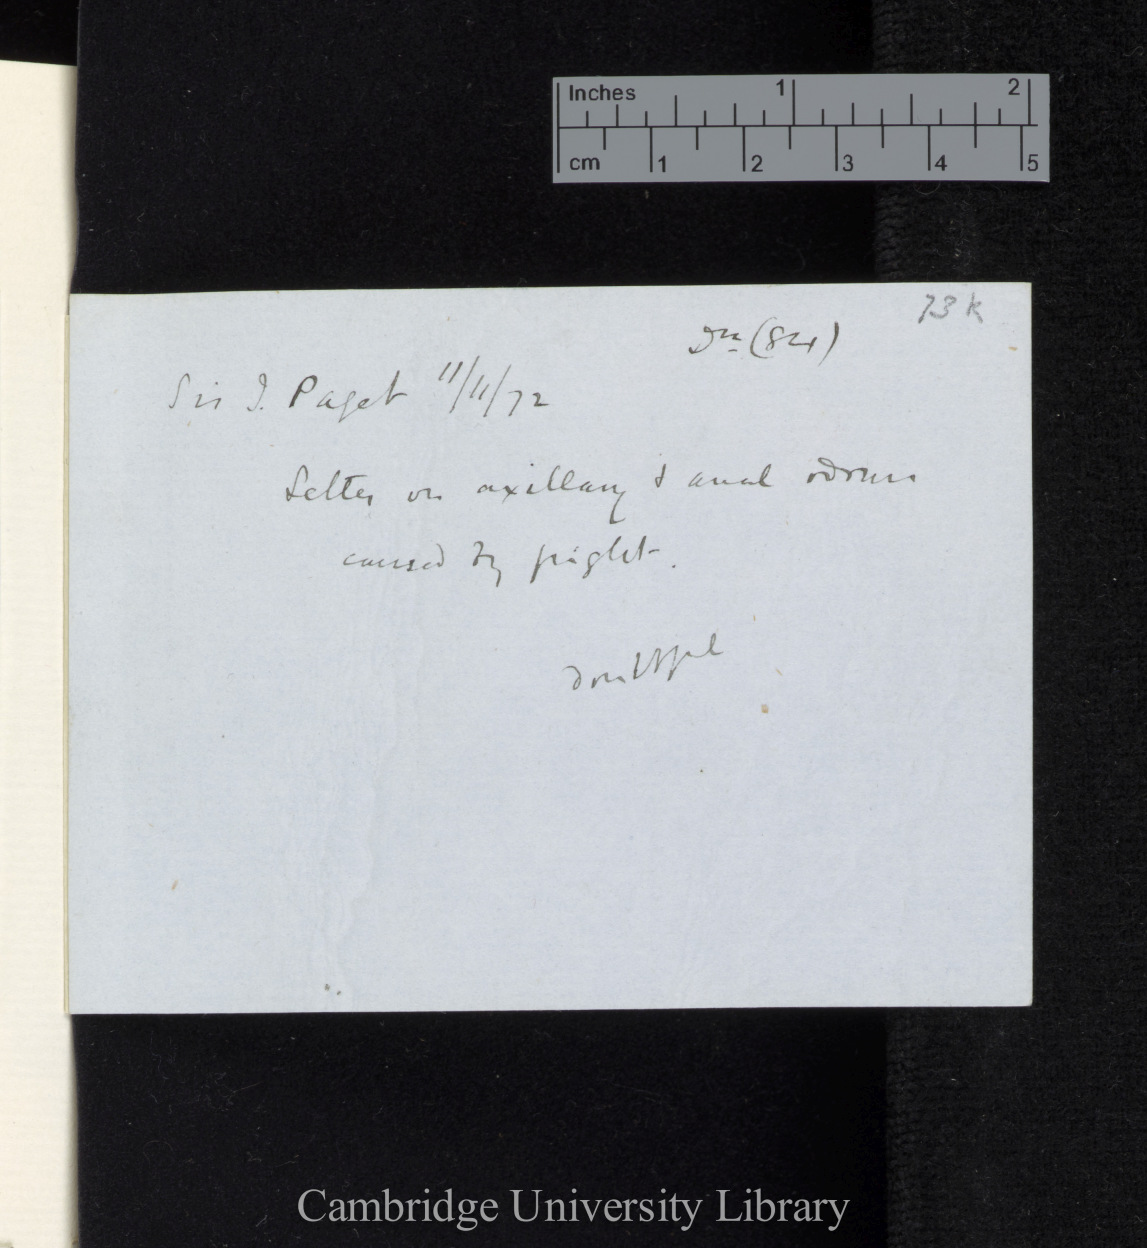 Inches 1 2
cm 1 2 3 4 5
73 k
(84)
Sir J. Paget 11/11/72
Letter on axillary & anal odours
caused by fright.
doubtful
Cambridge University Library